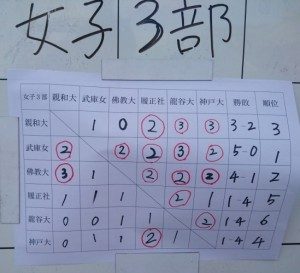 女子3部
女子3部 親和大 武庫女 佛教大 履正社 龍谷大 神戸大 勝敗 順位
親和大 1 0 2 3 3 3-2 3
武庫女 2 2 2 3 2 5-0 1
佛教大 3 1 2 2 2 4-1 2
履正社 1 1 1 2 1 1 4 5
龍谷大 0 0 1 1 2 1 4 6
神戸大 0 1 1 2 1 1-4 4